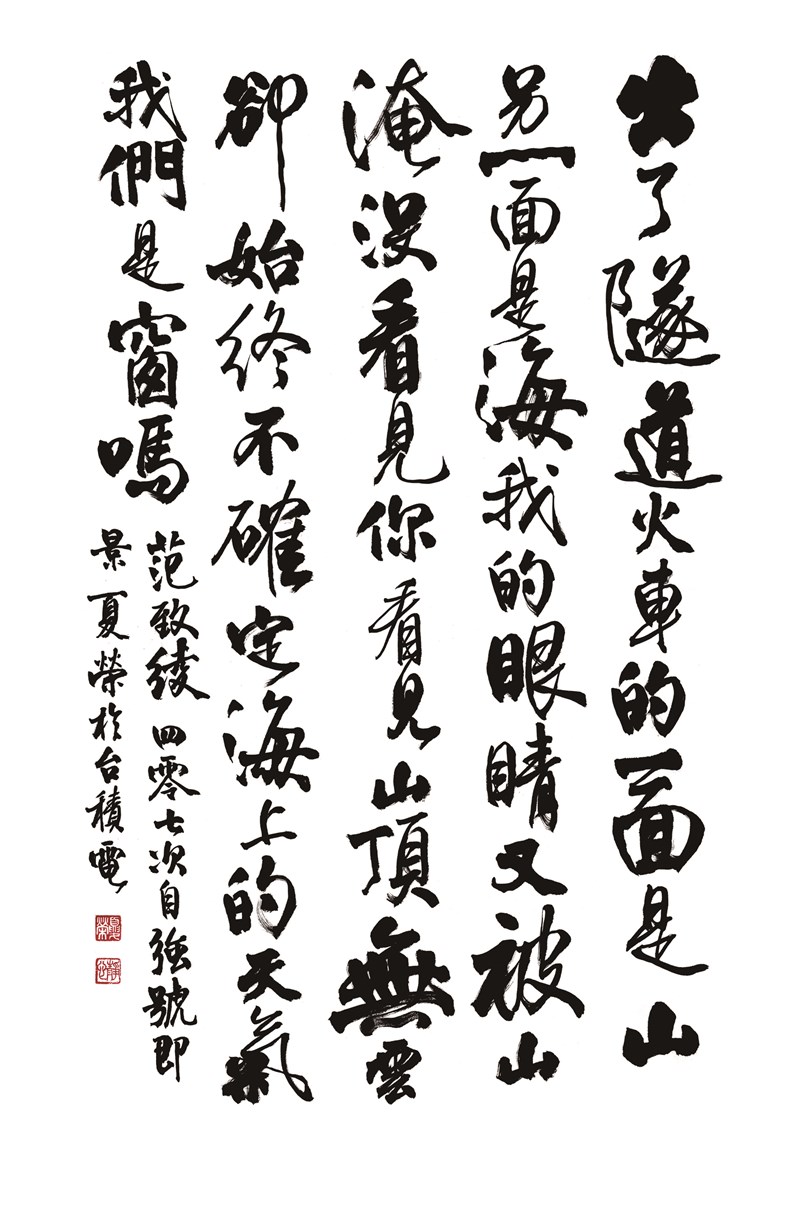 出了隧道火車的一面是山
另一面是海我的眼睛又被山
淹沒看見你看見山頂無雲
卻始終不確定海上的天氣
我們是窗嗎
范致綾 四零七次自強號即
景 夏榮於台積電